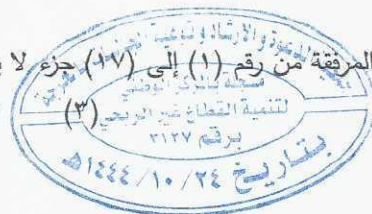 المرفقة من رقم (١) إلى (١٧) جزء لا
(٣)
والإرشاد وتوعية
مسجلة بالمركز الوطني
لتنمية القطاع غير الربحي
برقم ٣١٢٧
بتاريخ ١٤٤٤/١٠/٢٤هـ